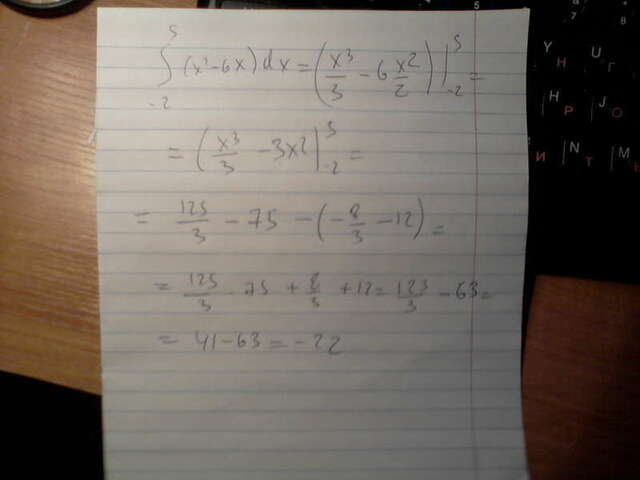 ∫₋₂⁵ (x²-6x)dx = (x³/3 - 6 x²/2)|₋₂⁵ =
= (x³/3 - 3x²|₋₂⁵ =
= 125/3 - 75 - (-8/3 - 12) =
= 125/3 - 75 + 8/3 + 12 = 123/3 - 63 =
= 41-63 = -22
5
7
8
Y Н
U Г
H Р
J О
И
N Т
M Ь